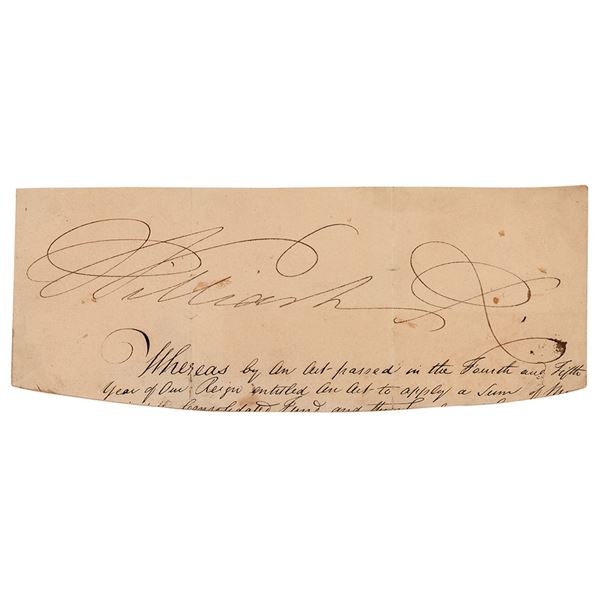 William R.
Whereas by An Act passed in the Fourth and Fifth
Year of Our Reign entitled An Act to apply a Sum of
Consolidated Fund and